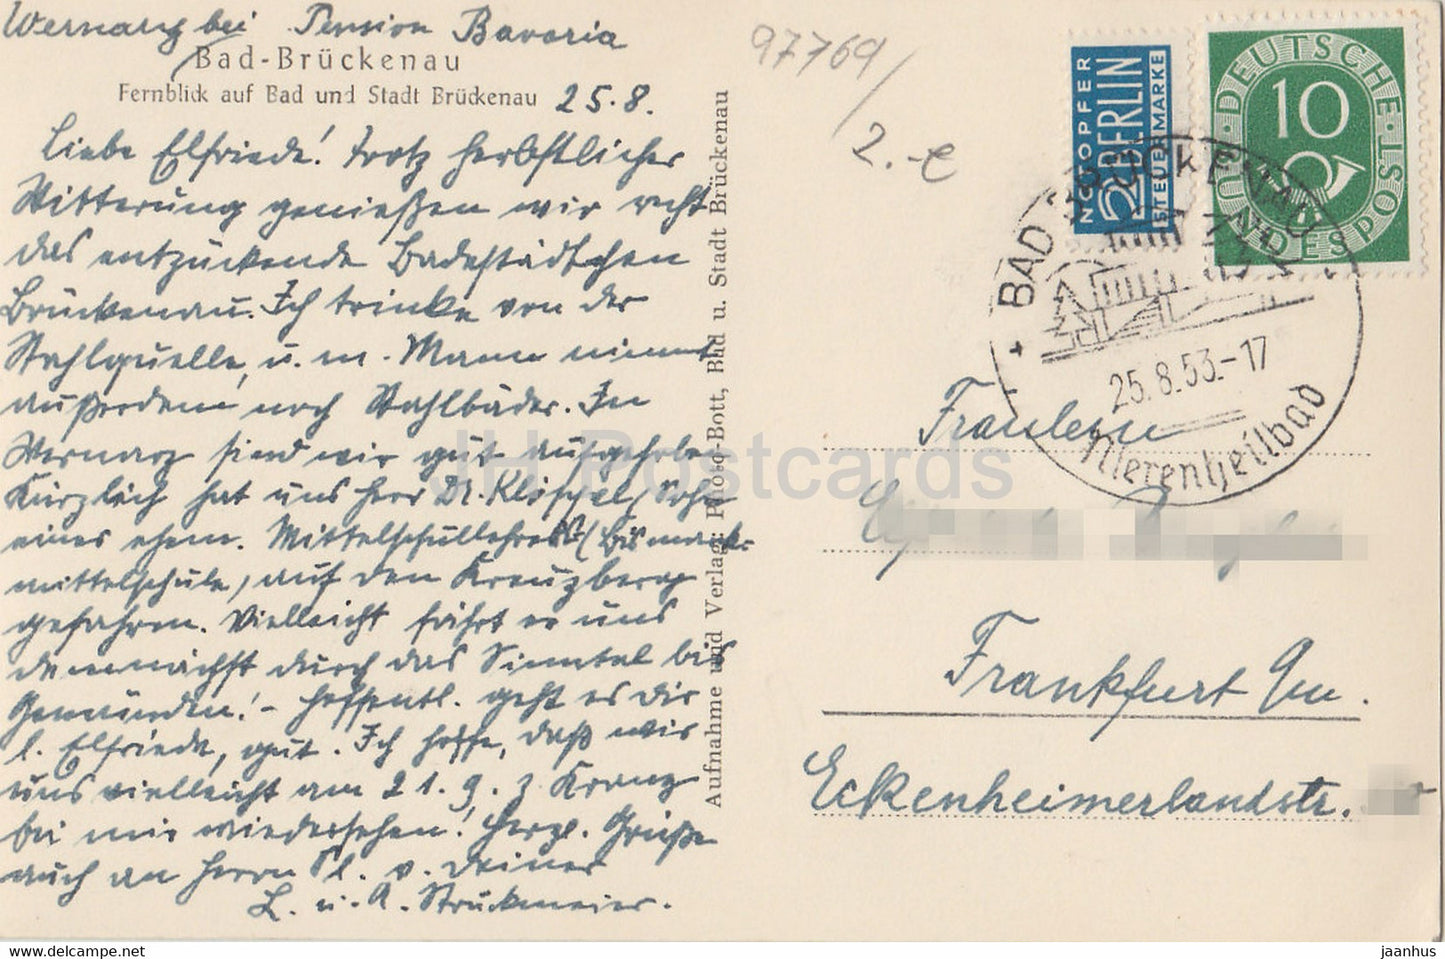 Wernarz bei Pension Bavaria
Bad-Brückenau
Fernblick auf Bad und Stadt Brückenau 25.8.
Liebe Elfriede! Trotz herbstlicher
Witterung genießen wir recht
das entzückende Badestädtchen
Brückenau. Ich trinke von der
Stahlquelle, u. m. Mann nimmt
außerdem noch Stahlbäder. In
Wernarz sind wir gut aufgehoben
Kürzlich hat uns Herr Dr. Klöppel (Sohn
eines ehem. Mittelschullehrers (Bismarck-
mittelschule) auf den Kreuzberg
gefahren. Vielleicht fährt er uns
demnächst durch das Sinntal bis
Gemünden! – Hoffentl. geht es Dir
l. Elfriede, gut. Ich hoffe, daß wir
uns vielleicht am 21.9. z Kranz
bei mir wiedersehen! Herzl. Grüße
auch an Herrn Pl. v. Deiner
L. u. A. Strückmeier.
Aufnahme und Verlag: Photo-Bott, Bad u. Stadt Brückenau
97769/
2.-€
NOTOPFER
2 BERLIN
STEUERMARKE
DEUTSCHE BUNDESPOST
10
BAD BRÜCKENAU
25.8.53.-17
Nierenheilbad
Fräulein
Frankfurt Am.
Eckenheimerlandstr.
JH Postcards
www.delcampe.net
jaanhus